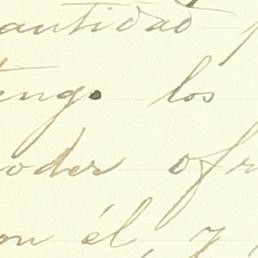 antidad
tengo los
poder ofr
on él, y